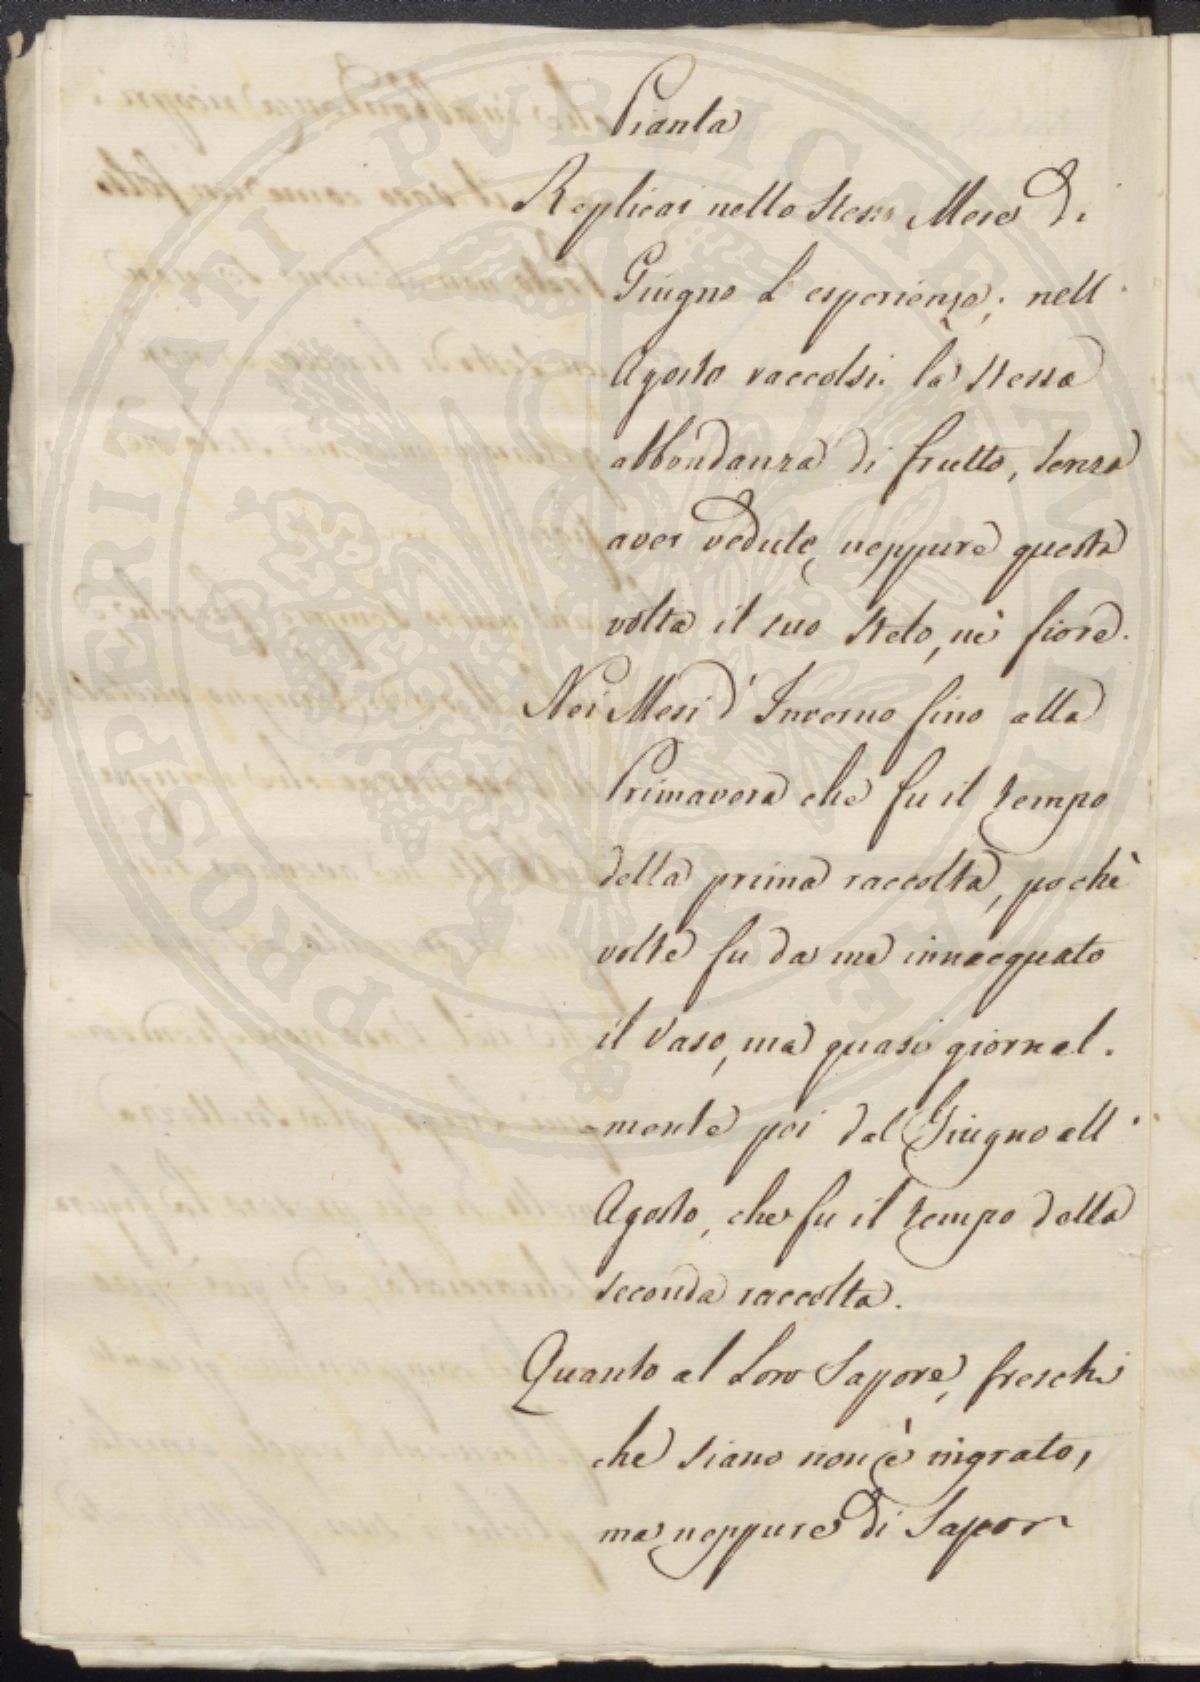 Pianta
Replicai nello stesso Mese di
Giugno l'esperienza; nell'
Agosto raccolsi la stessa
abbondanza di frutto, senza
aver vedute, neppure questa
volta il suo stelo, nè fiore.
Nei Mesi d'Inverno fino alla
Primavera che fu il tempo
della prima raccolta, pochè
volte fu da me innacquato
il Vaso, ma quasi giornal.
=mente poi dal Giugno all'
Agosto, che fu il tempo della
seconda raccolta.
Quanto al Loro Sapore, freschi
che siano non è ingrato,
ma neppure di Sapor
PROSPERITATI PUBLICAE AUGENDAE